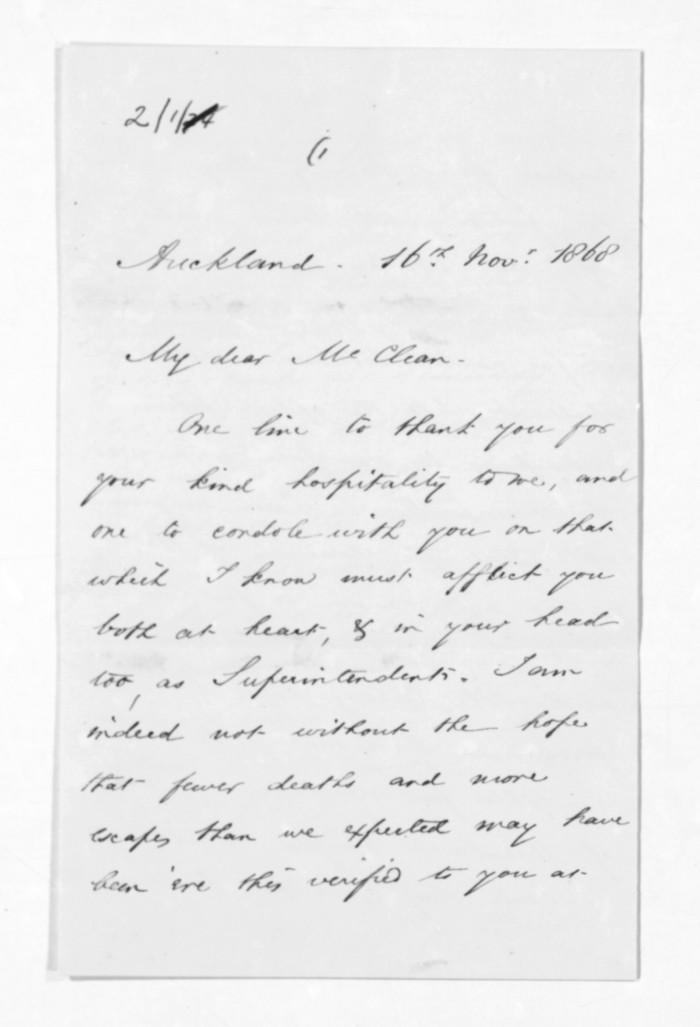 2/1/
(1
Auckland. 16th Novr. 1868
My dear McClean.
One line to thank you for
your kind hospitality to me, and
one to condole with you on that
which I know must afflict you
both at heart, & in your head
too, as Superintendent. I am
indeed not without the hope
that fewer deaths and more
escapes than we expected may have
been 'ere this verified to you as